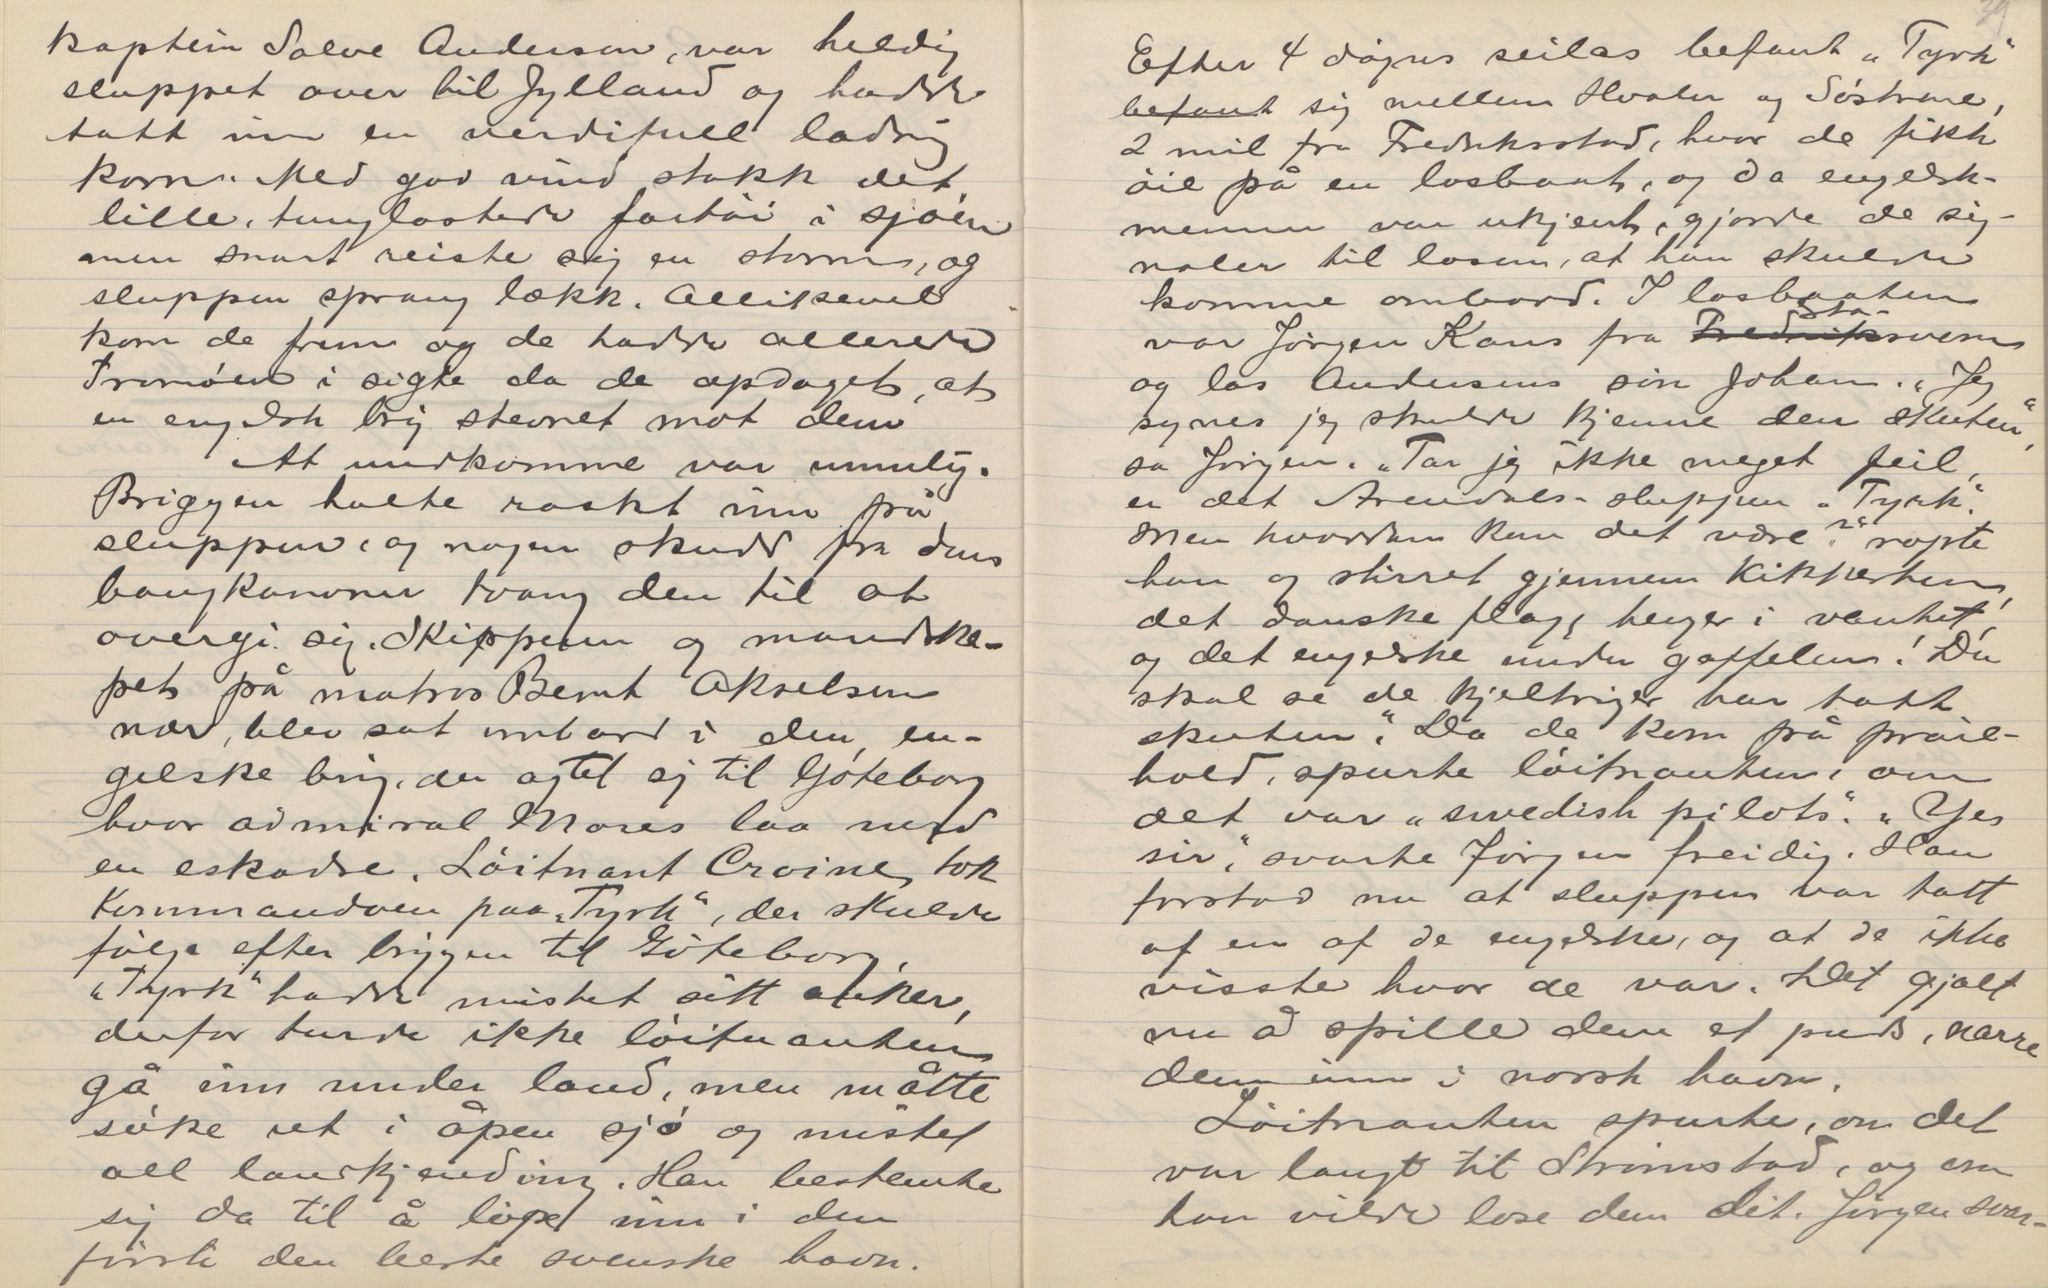 kaptein Salve Andersen, var heldig
sluppet over til Jylland og hadde
tatt inn en verdifull ladnig
korn. Med god vind stakk det
lille, tunglastede fartöi i sjöen
men snart reiste sig en storm, og
sluppen sprang lækk. Allikevel
kom de frem og de hadde allerede
Tromöen i sigte da de opdaget, at
en engelsk brig stevnet mot dem
At undkomme var umulig.
Briggen halte raskt inn på
sluppen, og nogen skudd fra dens
baugkanoner tvang den til at
overgi sig. Skipperen og mandska-
pet på matros Bernt Akselsen
nær, blev sat ombord i den en-
gelske brig, der agtet sig til Göteborg
hvor admiral Mores laa med
en eskadre. Löitnant Croine, tok
Kommandoen paa „Tyrk", der skulde
fölge efter briggen til Göteborg.
„Tyrk" hadde mistet sitt anker,
derfor turde ikke löitnanten
gå inn under land, men måtte
söke ut i åpen sjö og mistet
all landkjending. Han bestemte
sig da til å löpe inn i den
förste den beste svenske havn.
39
Efter 4 dögns seilas befant „Tyrk"
befant sig mellem Hvaler og Söstrene,
2 mil fra Fredriksstad, hvor de fikk
öie på en losbaat, og da engelsk-
mennene var ukjent, gjorde de sig-
naler til losen, at han skulde
komme ombord. I losbaaten
var Jörgen Kans fra Fredriksvern
Sta-
og los Andersens sön Johan. „Jeg
synes jeg skulde kjenne den skuten",
sa Jörgen. „Tar jeg ikke meget feil,
er det Arendals-sluppen „Tyrk".
Men hvordan kan det være?" ropte
han og stirret gjennem kikkerten,
det danske flag, henger i vantet,
og det engelske under gaffelen! Du
skal se de kjeltriger har tatt
skuten". Da de kom på praie-
hold, spurte löitnanten, om
det var „swedish pilots". „Yes
sir", svarte Jörgen freidig. Han
forstod nu at sluppen var tatt
af en af de engelske, og at de ikke
visste hvor de var. Det gjalt
nu å spille dem et puds, narre
dem inn i norsk havn.
Löitnanten spurte, om det
var langt til Strömstad, og om
han vilde lose dem dit. Jörgen svar-